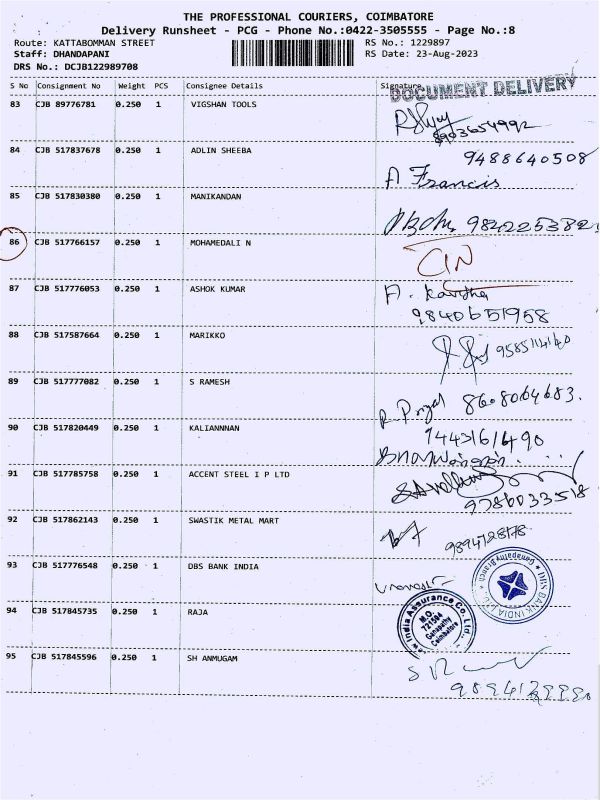 THE PROFESSIONAL COURIERS, COIMBATORE
Delivery Runsheet - PCG - Phone No.:0422-3505555 - Page No.:8
Route: KATTABOMMAN STREET RS No.: 1229897
Staff: DHANDAPANI RS Date: 23-Aug-2023
DRS No.: DCJB122989708
S No Consignment No Weight PCS Consignee Details Signature
DOCUMENT DELIVERY
83 CJB 89776781 0.250 1 VIGSHAN TOOLS
8903654992
84 CJB 517837678 0.250 1 ADLIN SHEEBA 9488640508
A Francis
85 CJB 517830380 0.250 1 MANIKANDAN
86 CJB 517766157 0.250 1 MOHAMEDALI N
87 CJB 517776053 0.250 1 ASHOK KUMAR A. Kavitha
9840651958
88 CJB 517587664 0.250 1 MARIKKO
89 CJB 517777082 0.250 1 S RAMESH 8608064683.
90 CJB 517820449 0.250 1 KALIANNNAN
91 CJB 517785758 0.250 1 ACCENT STEEL I P LTD
9786033518
92 CJB 517862143 0.250 1 SWASTIK METAL MART
9894728178
93 CJB 517776548 0.250 1 DBS BANK INDIA
DBS BANK INDIA LTD. Ganapathy Branch
94 CJB 517845735 0.250 1 RAJA
India Assurance Co. Ltd.
M.O.
721504
Ganapathy
Coimbatore
95 CJB 517845596 0.250 1 SH ANMUGAM